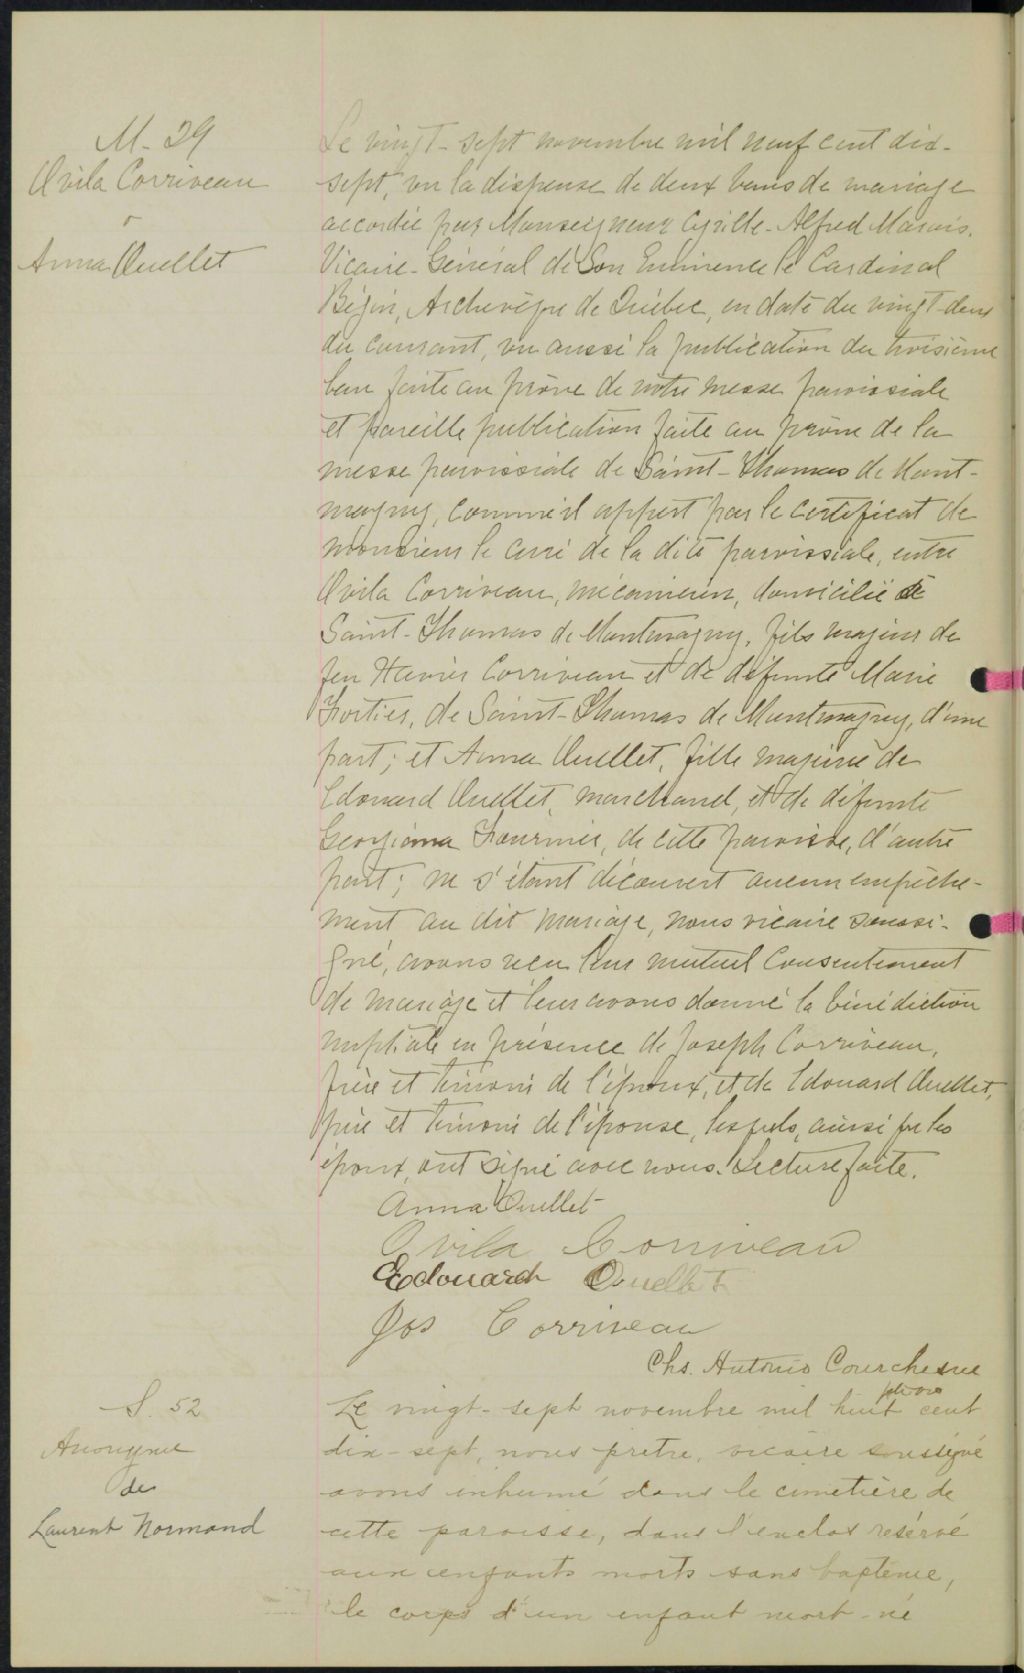 M. 29
Ovila Corriveau
&
Anna Ouellet
Le vingt-sept novembre mil neuf cent dix-
sept, vu la dispense de deux bans de mariage
accordée par Monseigneur Cyrille-Alfred Marois,
Vicaire-Général de Son Eminence le Cardinal
Bégin, Archevêque de Québec, en date du vingt-deux
du courant, vu aussi la publication du troisième
ban faite au prône de notre messe paroissiale
et pareille publication faite au prône de la
messe paroissiale de Saint-Thomas de Mont-
magny, comme il appert par le certificat de
monsieur le curé de la dite paroissiale, entre
Ovila Corriveau, mécanicien, domicilié de
Saint-Thomas de Montmagny, fils majeur de
feu Xavier Corriveau et de défunte Marie
Fortier, de Saint-Thomas de Montmagny, d'une
part; et Anna Ouellet, fille majeure de
Edouard Ouellet, marchand, et de défunte
Georgianna Fournier, de cette paroisse, d'autre
part; ne s'étant découvert aucun empêche-
ment au dit mariage, nous vicaire soussi-
gné, avons reçu leur mutuel consentement
de mariage et leur avons donné la bénédiction
nuptiale en présence de Joseph Corriveau,
frère et témoin de l'époux, et de Edouard Ouellet,
père et témoin de l'épouse, lesquels, ainsi que les
époux, ont signé avec nous. Lecture faite.
Anna Ouellet
Ovila Corriveau
Edouard Ouellet
Jos Corriveau
Chs. Antonio Courchesne
ptre vic
S. 52
Anonyme
de
Laurent Normand
Le vingt-sept novembre mil huit cent
dix-sept, nous prêtre, vicaire soussigné
avons inhumé dans le cimetière de
cette paroisse, dans l'enclos réservé
aux enfants morts sans baptême,
le corps d'un enfant mort-né